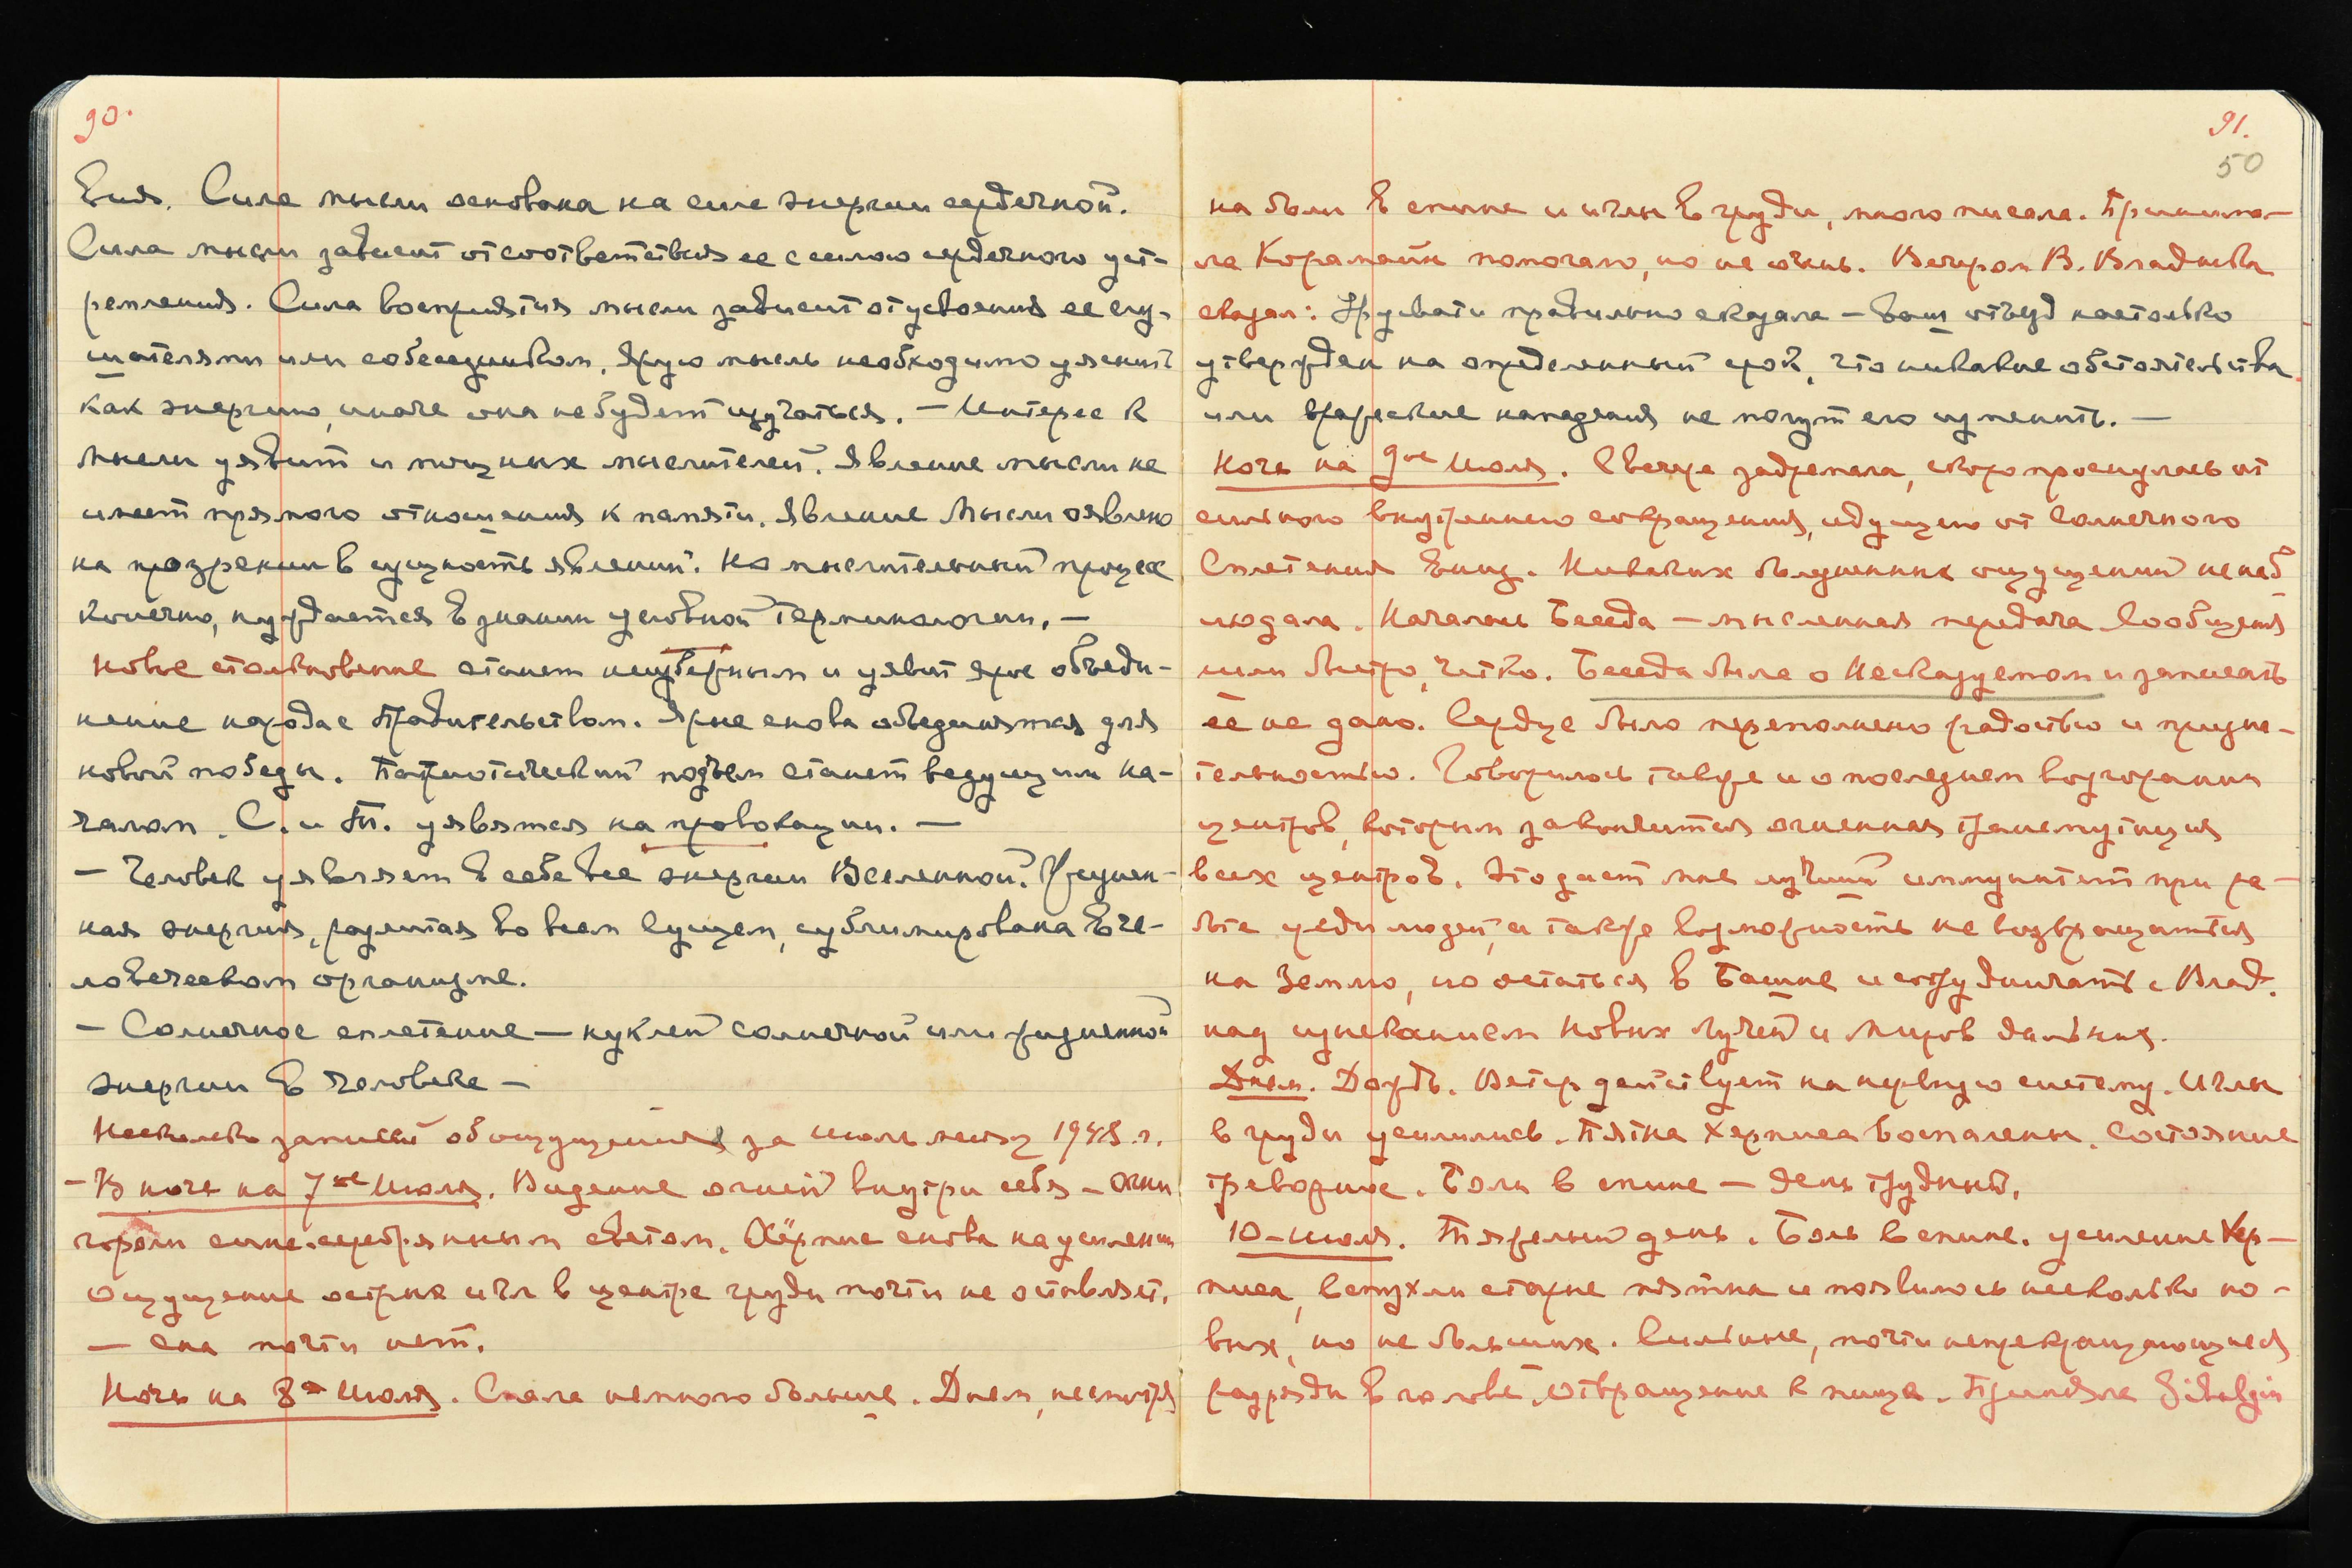 90.
вия. Сила мысли основана на силе энергии сердечной.
Сила мысли зависит от соответствия ее с силою сердечного уст-
ремления. Сила восприятия мысли зависит от усвоения ее слу-
шателями или собеседником. Ярую мысль необходимо уяснить
как энергию, иначе она не будет изучаться. — Интерес к
мысли уявит и мощных мыслителей. Явление мысли не
имеет прямого отношения к памяти. Явление мысли оявлено
на прозрении в сущность явлений. Но мыслительный процесс
конечно, нуждается в знании условной терминологии. —
Новое столкновение станет неизбежным и уявит ярое объеди-
нение народа с Правительством. Ярые снова объединятся для
новой победы. Патриотический подъем станет ведущим на-
чалом. С. и Тр. уявятся на провокации. —
— Человек уявляет в себе все энергии Вселенной.
ная энергия, разлитая во всем Сущем, сублимирована в че-
ловеческом организме.
— Солнечное сплетение — нуклей солнечной или жизненной
энергии в человеке —
Несколько записей об ощущениях за июль месяц 1948 г.
— В ночь на 7ое Июля. Видение огней внутри себя — огни
горели сине-серебряным светом. Хёрпис снова на усилении
Ощущение острых игл в центре груди почти не оставляет.
— Сна почти нет.
Ночь на 8ое Июля. Спала немного больше. Днем, несмотря
91.
50
на боли в спине и иглы в груди, много писала. Принима-
ла Корамайн помогало, но не очень. Вечером В. Владыка
сказал: Урусвати правильно сказала — ваш отъезд настолько
утвержден на определенный срок, что никакие обстоятельства
или вражеские нападения не могут его изменить. —
Ночь на 9ое Июля. Сейчас задремала, скоро проснулась от
сильного внутреннего сокращения, идущего от Солнечного
Сплетения вниз. Никаких болезненных ощущений не наб-
людала. Началась Беседа — мысленная передача Сообщения
шли быстро, четко. Беседа была о Несказуемом и записать
её не дано. Сердце было переполнено радостью и призна-
тельностью. Говорилось также и о последнем возгорании
центров, которым закончится огненная трансмутация
всех центров. Это дает мне лучший иммунитет при ра-
боте среди людей, а также возможность не возвращаться
на Землю, но остаться в Башне и сотрудничать с Влад.
над изысканием Новых Лучей и Миров дальних.
Днем. Дождь. Ветер действует на нервную систему. Иглы
в груди усилились. Пятна Херписа воспалены. Состояние
тревожное. Боль в спине — день трудный.
10-Июля. Тяжелый день. Боль в спине. усиление Хер-
писа, вспухли старые пятна и появилось несколько но-
вых, но не больших. Сильные, почти непрекращающиеся
разряды в голове. Отвращение к пище. Приняла